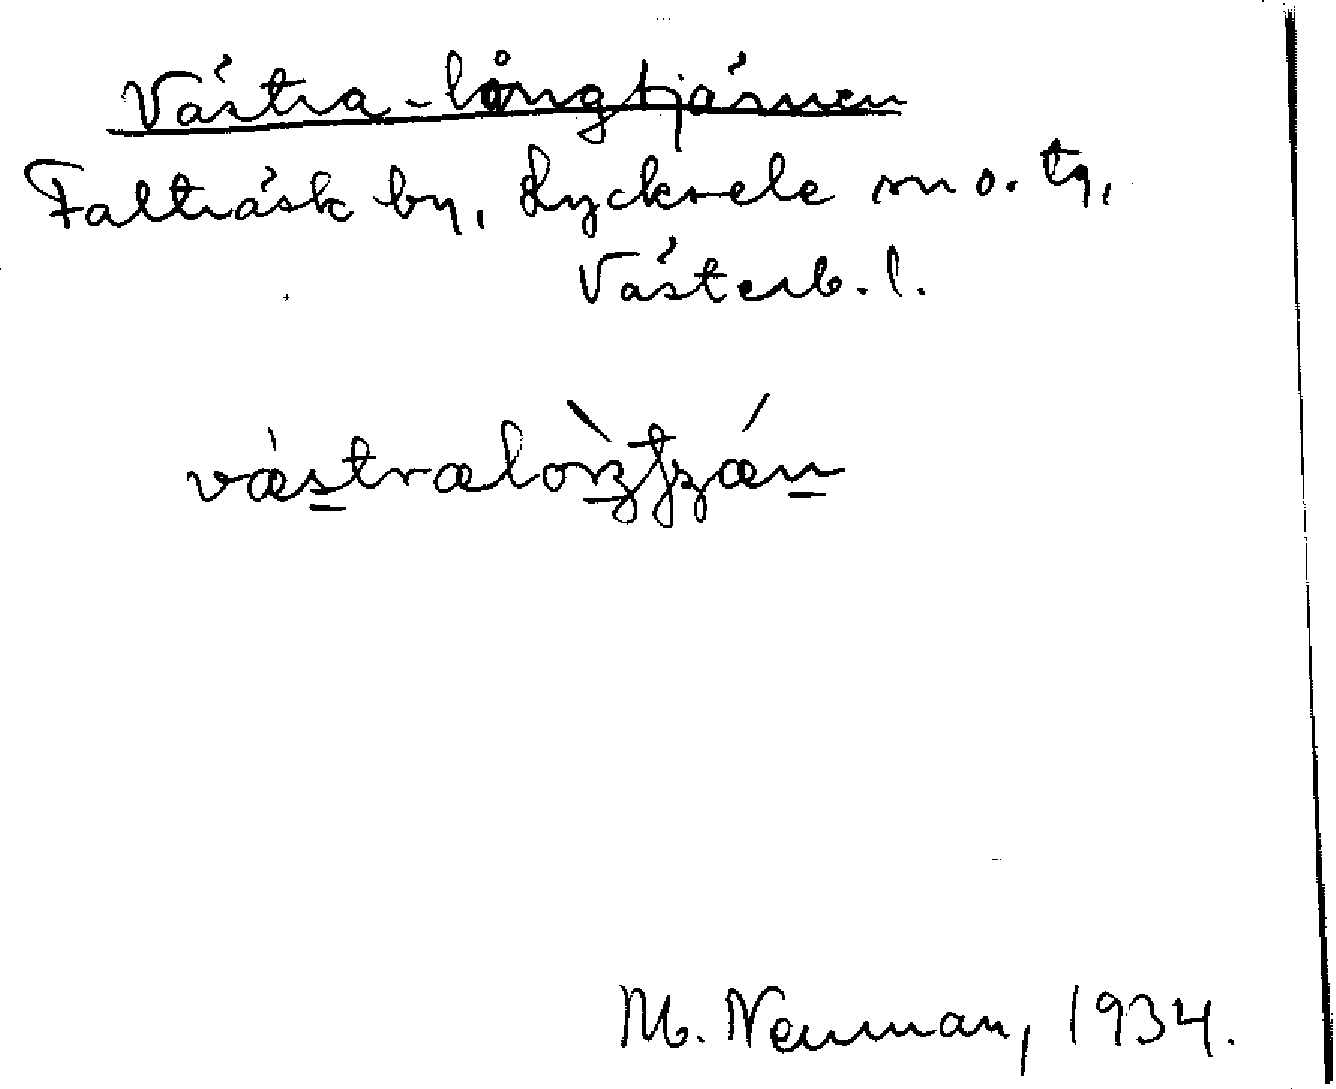 Västra-långtjärnen
Falträsk by, Lycksele m o. tg,
Västerb. l.
M. Neuman, 1934.